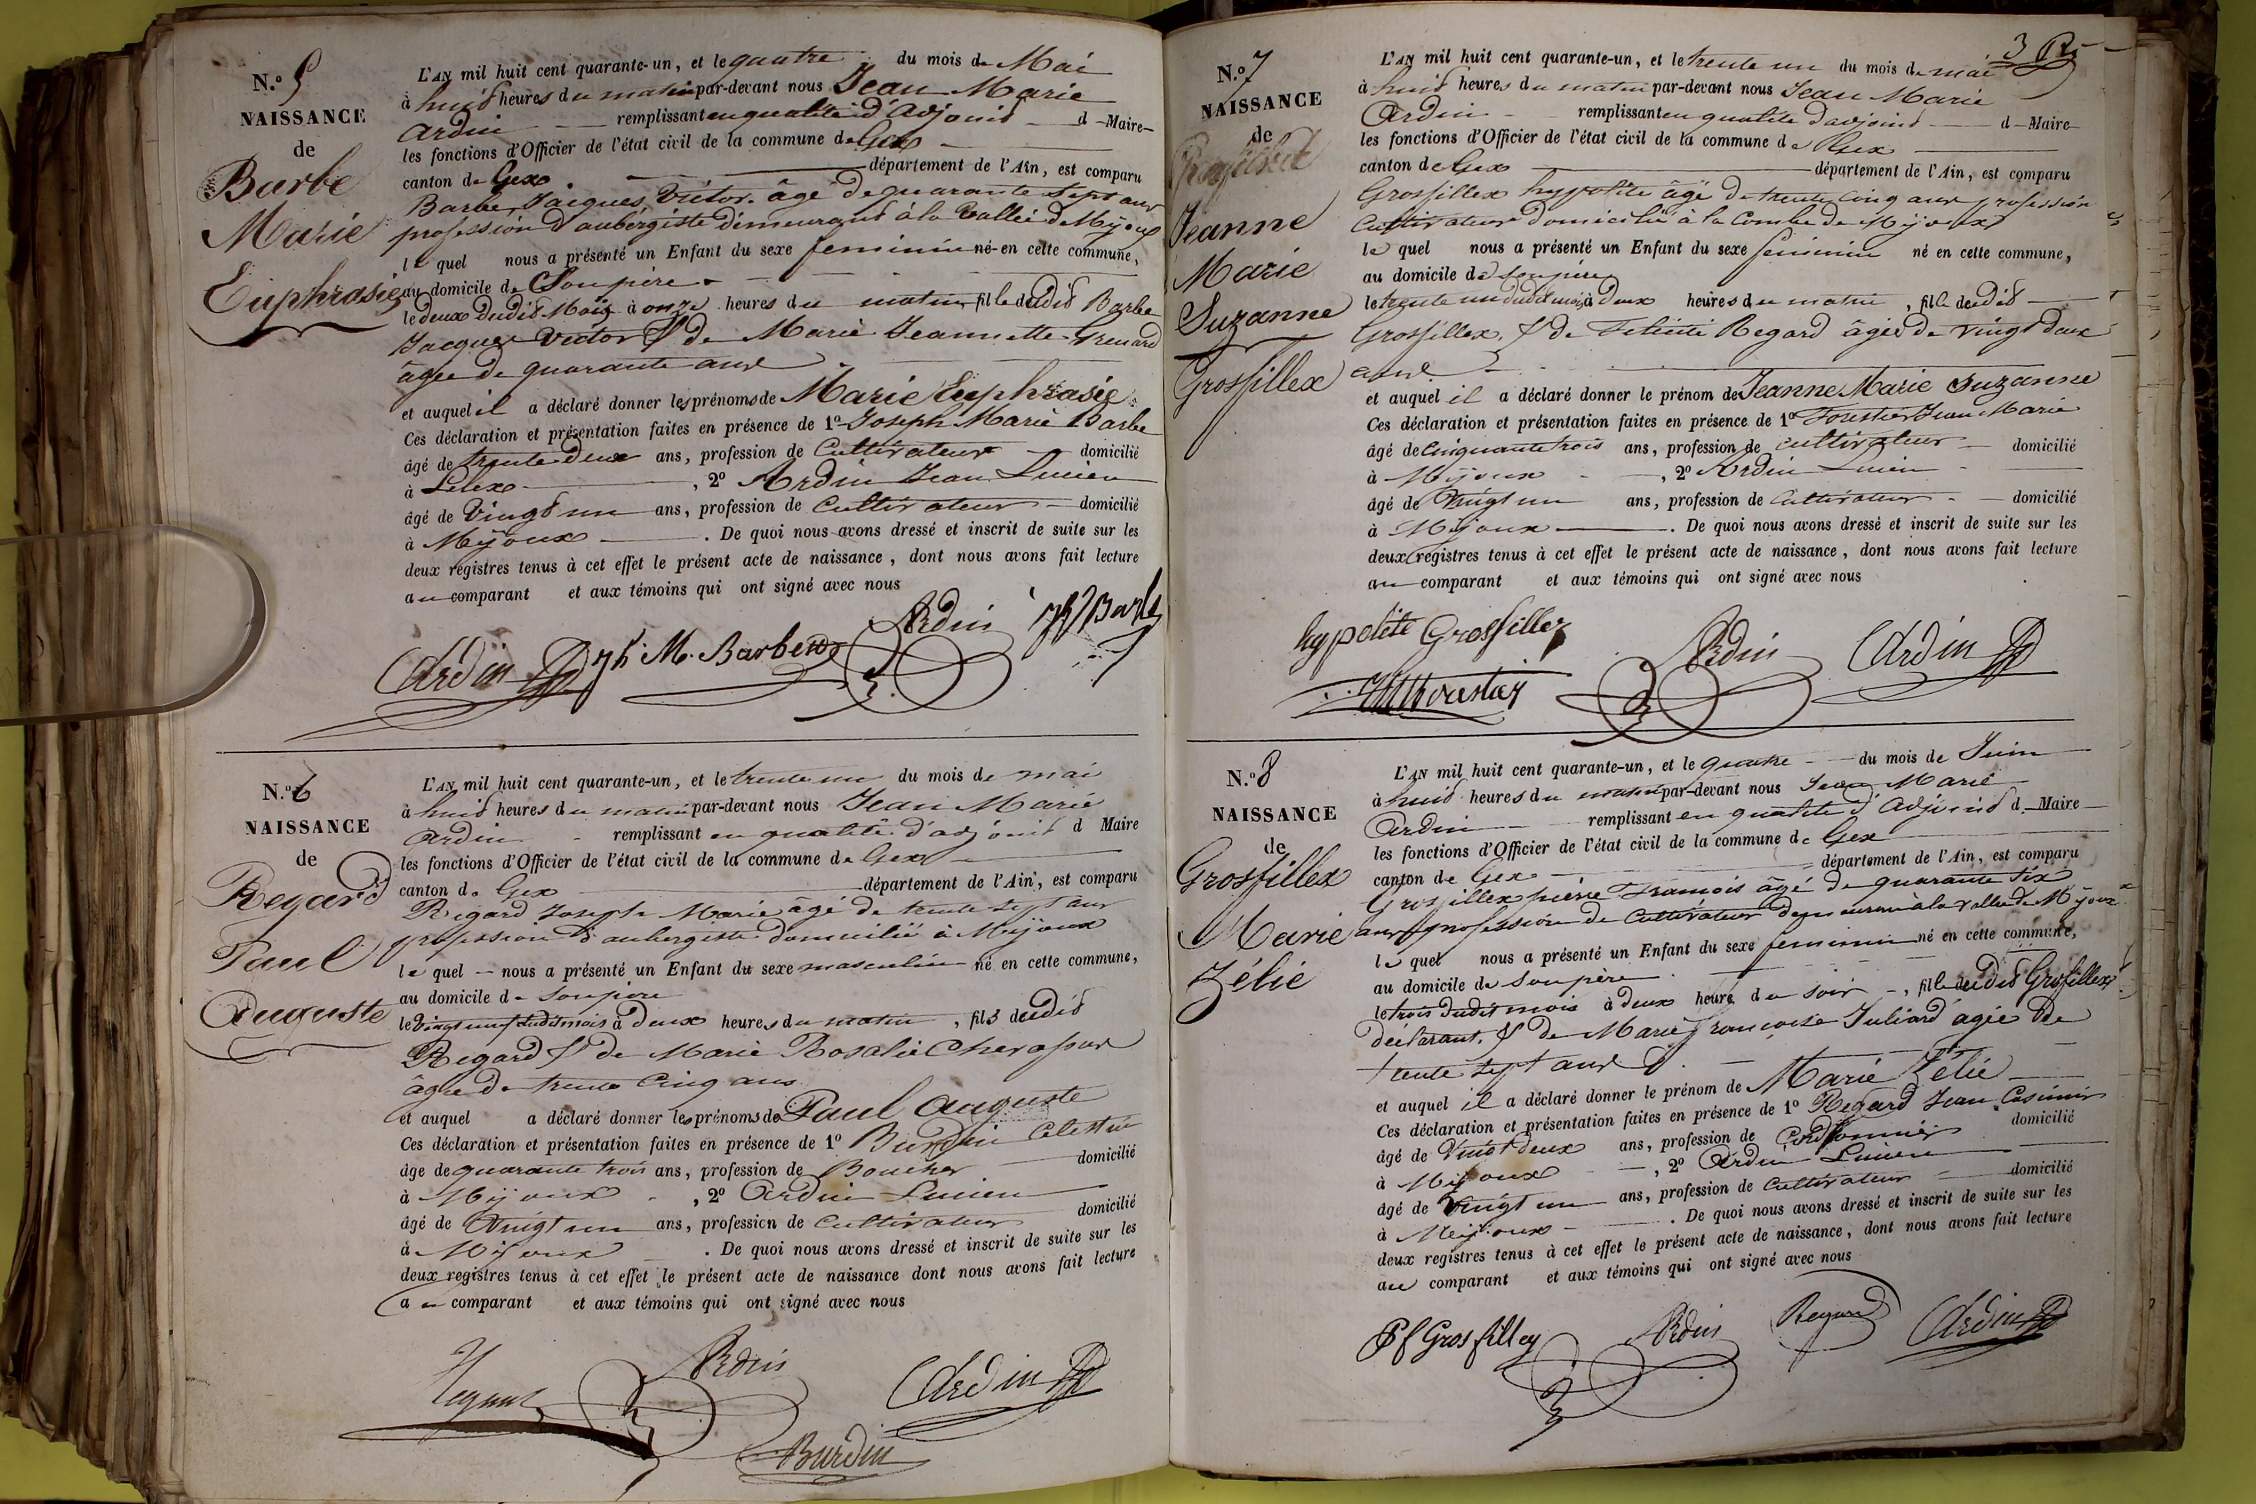 N.º 5
NAISSANCE
de
Barbe
Marie
Euphrasie
L'AN mil huit cent quarante-un, et le quatre du mois de Mai
à huit heures du matin par-devant nous Jean Marie
Ardin remplissant en qualité d'Adjoint d Maire
les fonctions d'Officier de l'état civil de la commune de Gex
canton de Gex département de l'Ain, est comparu
Barbe Jacques Victor âgé de quarante sept ans
profession d'aubergiste demeurant à la Vallée de Mijoux
lequel nous a présenté un Enfant du sexe feminin né en cette commune,
au domicile de Son père
le deux dudit Mois à onze heures du matin fille dudit Barbe
Jacques Victor & de Marie Jeannette Grenard
âgée de quarante ans
et auquel il a déclaré donner les prénoms de Marie Euphrasie
Ces déclaration et présentation faites en présence de 1º Joseph Marie Barbe
âgé de trente deux ans, profession de Cultivateur domicilié
à Lelex, 2º Ardin Jean Lucien
âgé de Vingt un ans, profession de Cultivateur domicilié
à Mijoux. De quoi nous avons dressé et inscrit de suite sur les
deux registres tenus à cet effet le présent acte de naissance, dont nous avons fait lecture
au comparant et aux témoins qui ont signé avec nous
Ardin Barbe
Ardin Jh M. Barbe
N.º 6
NAISSANCE
de
Regard
Paul
Auguste
L'AN mil huit cent quarante-un, et le trente un du mois de mai
à huit heures du matin par-devant nous Jean Marie
Ardin remplissant en qualité d'adjoint d Maire
les fonctions d'Officier de l'état civil de la commune de Gex
canton de Gex département de l'Ain, est comparu
Regard Joseph Marie âgé de trente sept ans
profession d'aubergiste domicilié à Mijoux
lequel nous a présenté un Enfant du sexe masculin né en cette commune,
au domicile de Son père
le vingt neuf dudit mois à deux heures du matin, fils dudit
Regard & de Marie Rosalie
âgée de trente Cinq ans
et auquel a déclaré donner les prénoms de Paul Auguste
Ces déclaration et présentation faites en présence de 1º Burdin Celestin
âge de quarante trois ans, profession de Boucher domicilié
à Mijoux, 2º Ardin Lucien
âgé de Vingt un ans, profession de Cultivateur domicilié
à Mijoux. De quoi nous avons dressé et inscrit de suite sur les
deux registres tenus à cet effet le présent acte de naissance dont nous avons fait lecture
au comparant et aux témoins qui ont signé avec nous
Regard Ardin Ardin
Burdin
3
N.º 7
NAISSANCE
de
Jeanne
Marie
Suzanne
Grosfillex
L'AN mil huit cent quarante-un, et le trente un du mois de mai
à huit heures du matin par-devant nous Jean Marie
Ardin remplissant en qualité d'adjoint d Maire
les fonctions d'Officier de l'état civil de la commune de Gex
canton de Gex département de l'Ain, est comparu
Grosfillex hypolite âgé de trente Cinq ans profession
Cultivateur domicilié à la Combe de Mijoux
lequel nous a présenté un Enfant du sexe feminin né en cette commune,
au domicile de son père
le trente un dudit mois à deux heures du matin, fille dudit
Grosfillex & de Felicité Regard âgée de vingt deux
ans
et auquel il a déclaré donner le prénom de Jeanne Marie Suzanne
Ces déclaration et présentation faites en présence de 1º Forestier Jean Marie
âgé de Cinquante trois ans, profession de cultivateur domicilié
à Mijoux, 2º Ardin Lucien
âgé de Vingt un ans, profession de Cultivateur domicilié
à Mijoux. De quoi nous avons dressé et inscrit de suite sur les
deux registres tenus à cet effet le présent acte de naissance, dont nous avons fait lecture
au comparant et aux témoins qui ont signé avec nous
hypolite Grosfillex Ardin Ardin
N.º 8
NAISSANCE
de
Grosfillex
Marie
Zélie
L'AN mil huit cent quarante-un, et le quatre du mois de Juin
à huit heures du matin par-devant nous Jean Marie
Ardin remplissant en qualité d'Adjoint d Maire
les fonctions d'Officier de l'état civil de la commune de Gex
canton de Gex département de l'Ain, est comparu
Grosfillex pierre Francois âgé de quarante Six
ans profession de Cultivateur demeurant à la vallée de Mijoux
lequel nous a présenté un Enfant du sexe feminin né en cette commune,
au domicile de Son père
le trois dudit mois à deux heure du soir, fille dudit Grosfillex
déclarant & de Marie Françoise Juliard agée de
trente sept ans
et auquel il a déclaré donner le prénom de Marie Zélie
Ces déclaration et présentation faites en présence de 1º Regard Jean Casimir
âgé de Vingt deux ans, profession de Cordonnier domicilié
à Mijoux, 2º Ardin Lucien
âgé de Vingt un ans, profession de Cultivateur domicilié
à Mijoux. De quoi nous avons dressé et inscrit de suite sur les
deux registres tenus à cet effet le présent acte de naissance, dont nous avons fait lecture
au comparant et aux témoins qui ont signé avec nous
Pf Grosfilley Ardin Regard Ardin